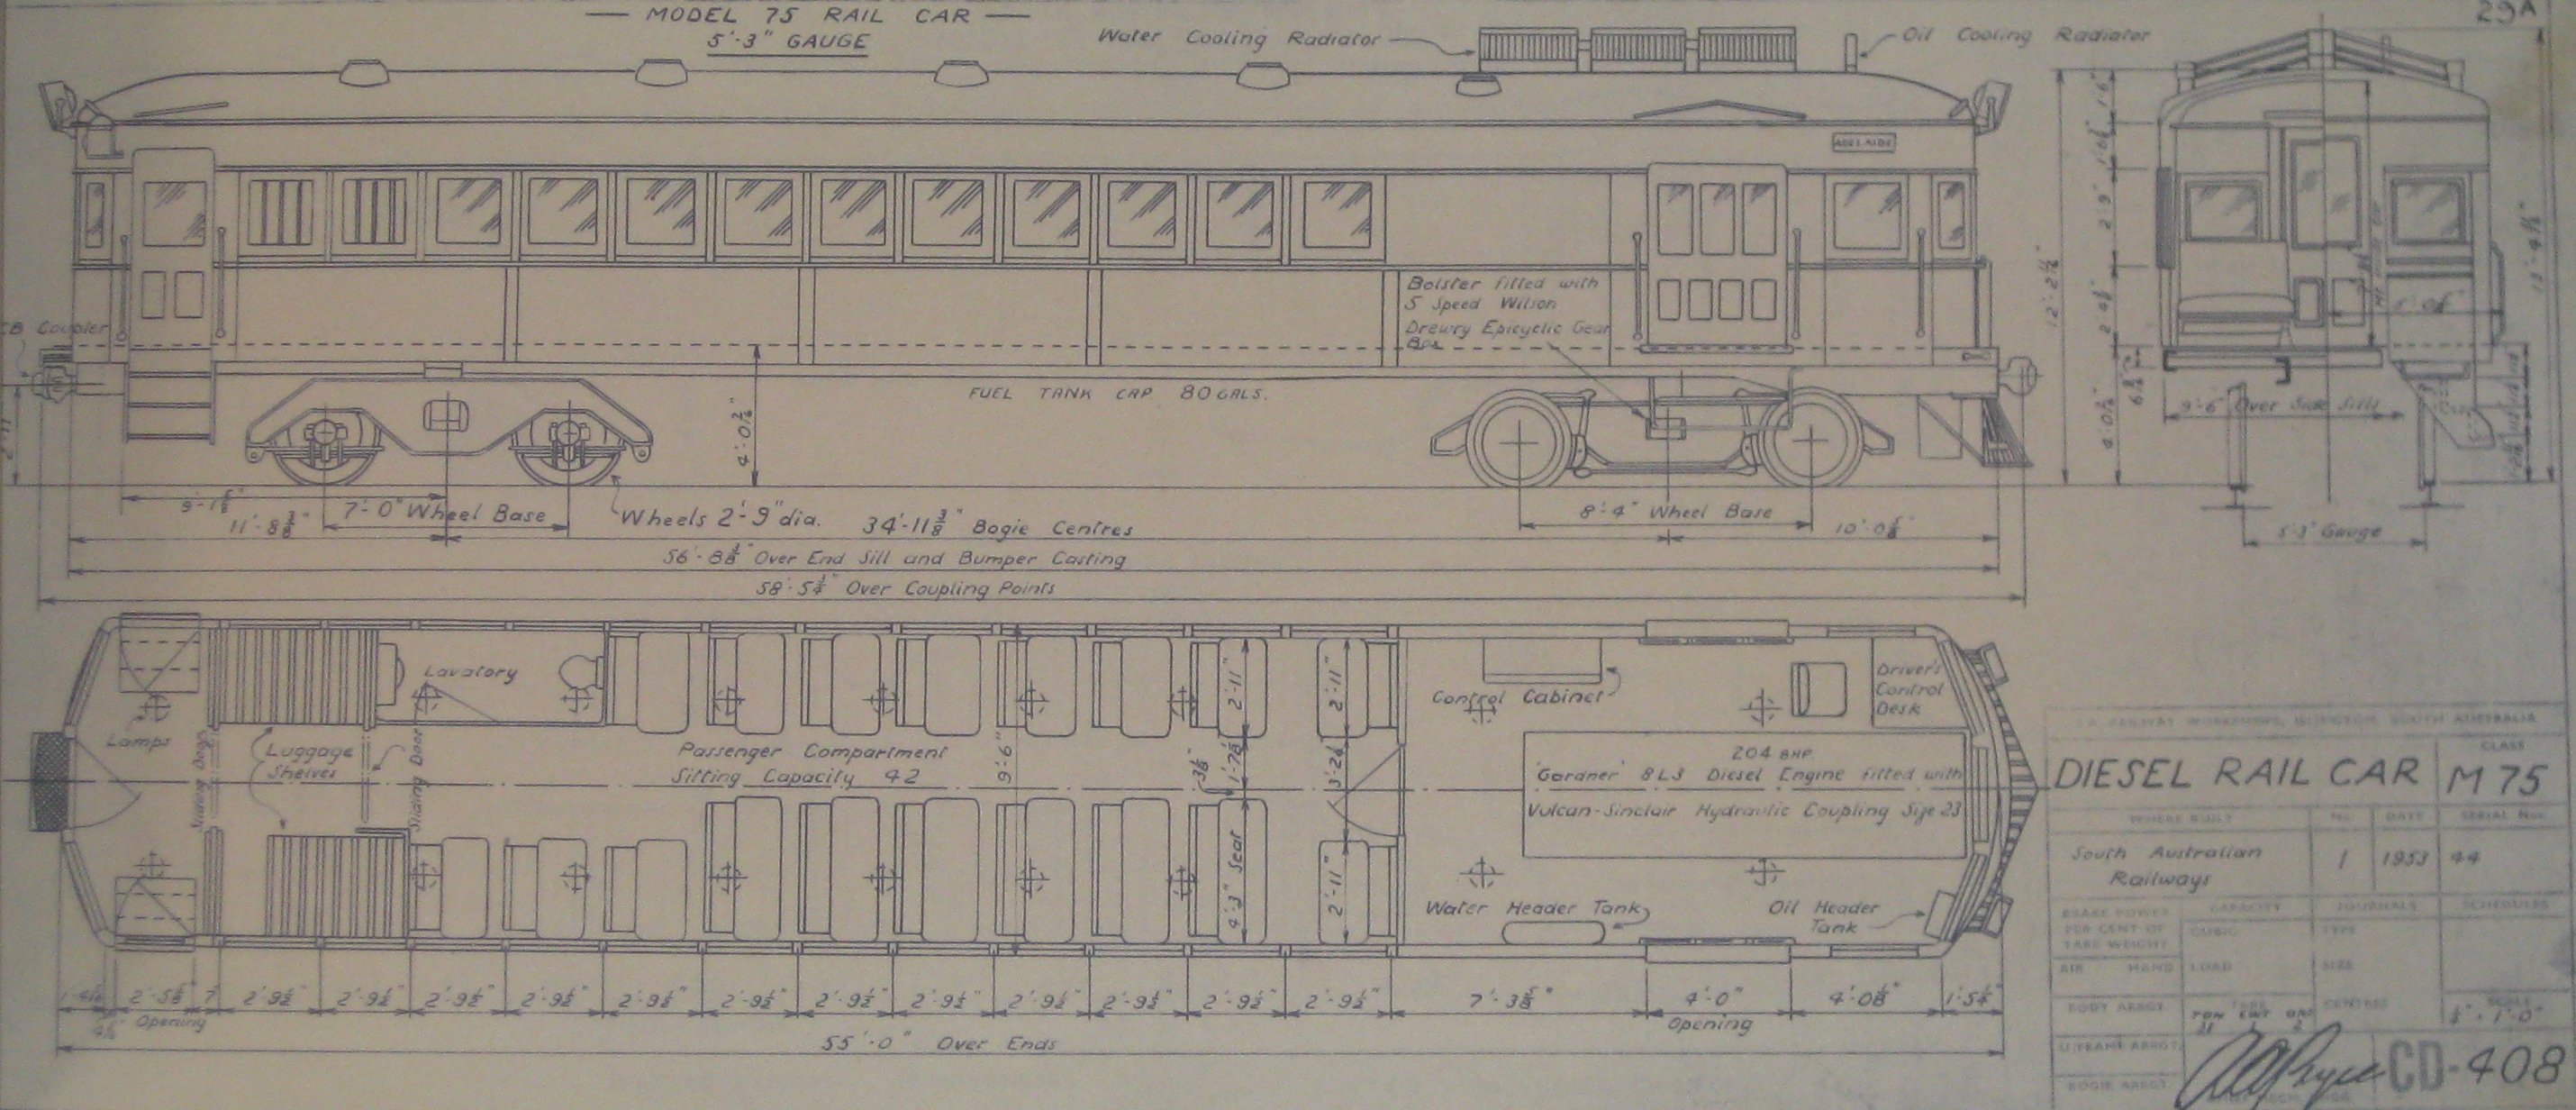 — MODEL 75 RAIL CAR —
5'-3" GAUGE
29A
Water Cooling Radiator
Oil Cooling Radiator
ADELAIDE
Coupler
Bolster fitted with
5 Speed Wilson
Drewry Epicyclic Gear
Box
FUEL TANK CAP 80 GALS.
4'-0½"
12'-2¼"
1'-6"
2'-9"
4'-0½"
9'-6" Over Side Sills
5'-3" Gauge
7'-0" Wheel Base
Wheels 2'-9" dia.
34'-11⅜" Bogie Centres
8'-4" Wheel Base
11'-8⅜"
10'-0⅝"
56'-8⅜" Over End Sill and Bumper Casting
58'-5¼" Over Coupling Points
Lavatory
Lamps
Luggage
Shelves
Sliding Door
Sliding Door
Passenger Compartment
Sitting Capacity 42
9'-6"
2'-11"
2'-11"
1'-7⅞"
4'-3" Seat
2'-11"
Control Cabinet
Driver's
Control
Desk
204 BHP
'Gardner' 8L3 Diesel Engine fitted with
Vulcan-Sinclair Hydraulic Coupling Size 23
Water Header Tank
Oil Header
Tank
2'-9½" 2'-9½" 2'-9½" 2'-9½" 2'-9½" 2'-9½" 2'-9½" 2'-9½" 2'-9½" 2'-9½" 2'-9½" 2'-9½" 7'-3⅝" 4'-0" 4'-0⅛" 1'-5¼"
Opening
Opening
55'-0" Over Ends
S.A. RAILWAY WORKSHOPS, ISLINGTON, SOUTH AUSTRALIA
DIESEL RAIL CAR
CLASS
M 75
WHERE BUILT No. DATE SERIAL Nos.
South Australian
Railways
1 1953 44
BRAKE POWER
PER CENT OF
TARE WEIGHT
CAPACITY JOURNALS SCHEDULES
CUBIC TYPE
AIR HAND LOAD SIZE
BODY ARRGT. TARE CENTRES SCALE
TON CWT QRS
U/FRAME ARRGT.
BOGIE ARRGT.
CD-408